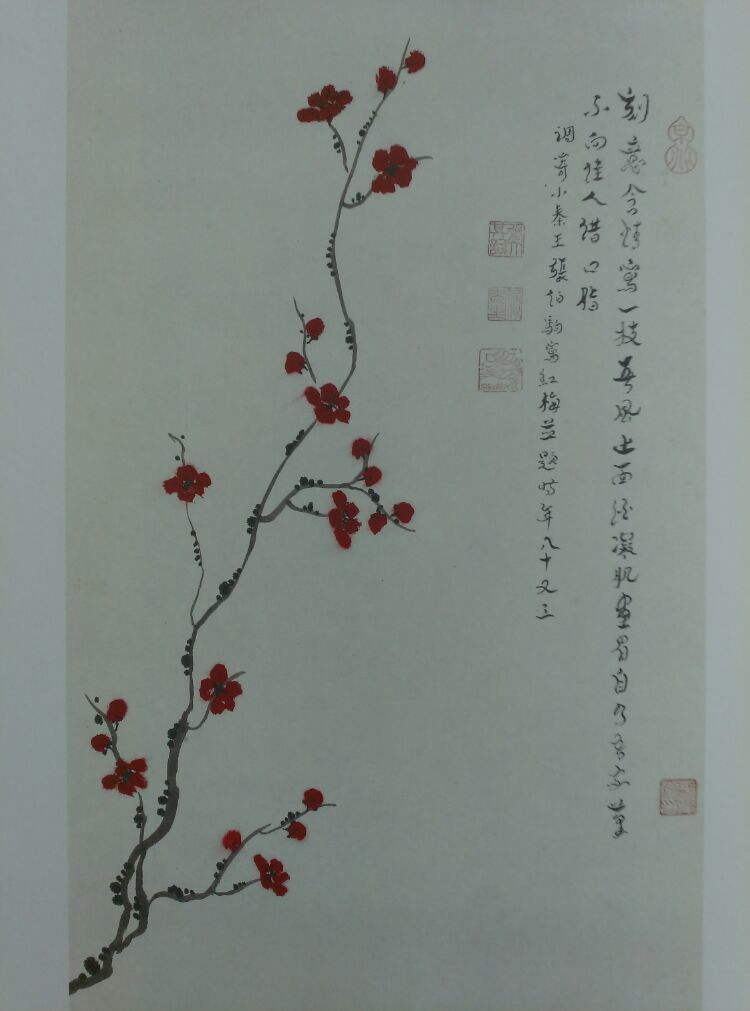 刻意含情寫一枝春風上面酒凝肌畫眉自乃吾家
不向佳人借口脂
調寄小秦王張伯駒寫紅梅並題時年八十又三
京兆